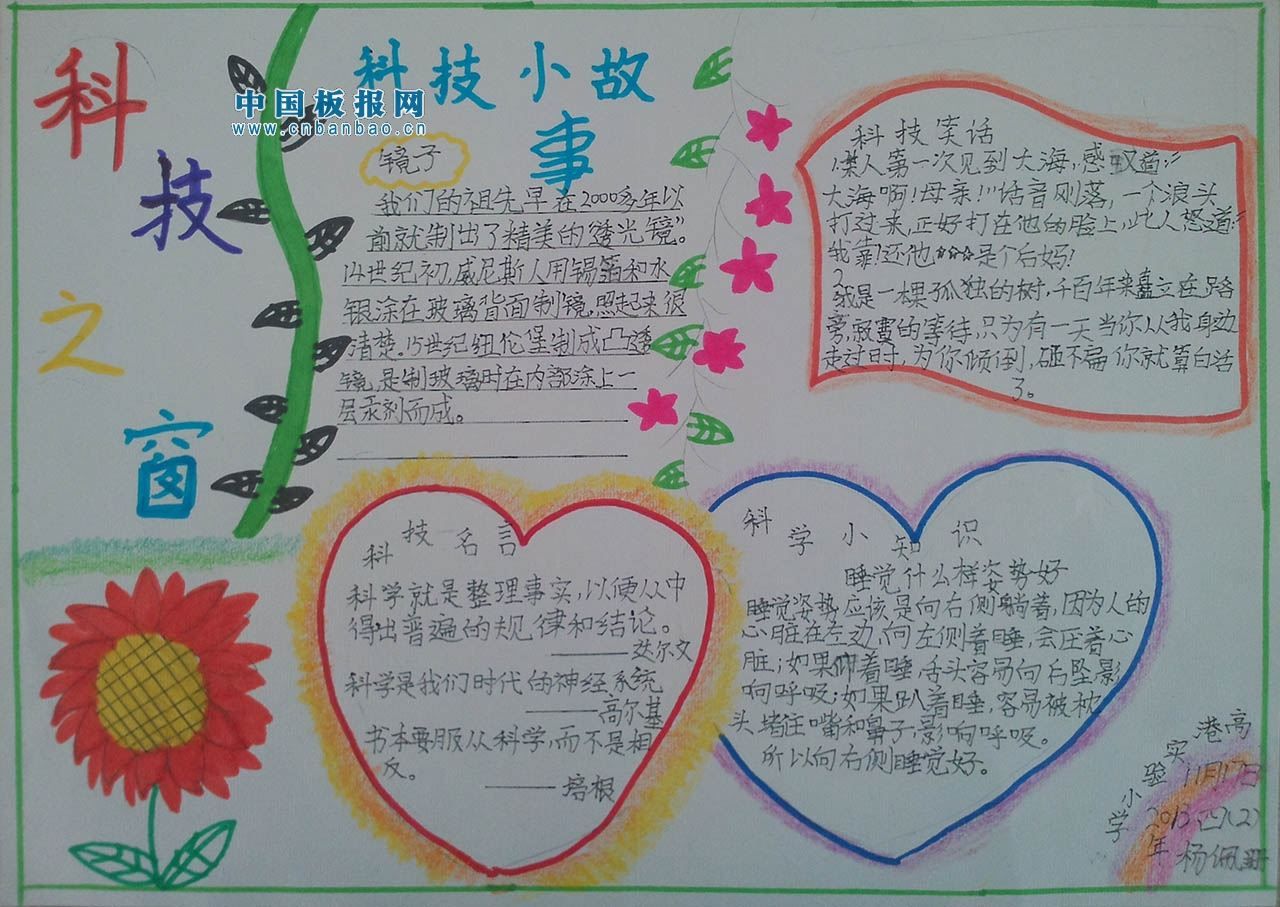 科
技
之
窗
中国板报网
www.cnbanbao.cn
科技小故
事
镜子
我们的祖先早在2000多年以
前就制出了精美的“透光镜”。
14世纪初,威尼斯人用锡箔和水
银涂在玻璃背面制镜,照起来很
清楚。15世纪纽伦堡制成凸透
镜,是制玻璃时在内部涂上一
层汞剂而成。
科技笑话
1某人第一次见到大海,感叹道:“
大海啊!母亲!”话音刚落,一个浪头
打过来,正好打在他的脸上,此人怒道:“
我靠!还他***是个后妈!
2
我是一棵孤独的树,千百年来矗立在路
旁,寂寞的等待,只为有一天当你从我身边
走过时,为你倾倒,砸不扁你就算白活
了。
科技名言
科学就是整理事实,以便从中
得出普遍的规律和结论。
——达尔文
科学是我们时代的神经系统
——高尔基
书本要服从科学,而不是相
反。
——培根
科学小知识
睡觉什么样姿势好
睡觉姿势应该是向右侧躺着,因为人的
心脏在左边,向左侧着睡,会压着心
脏;如果仰着睡,舌头容易向后坠,影
响呼吸;如果趴着睡,容易被枕
头堵住嘴和鼻子,影响呼吸。
所以向右侧睡觉好。
高港实验小学
11月17日
2013 四(2)
年
杨佩